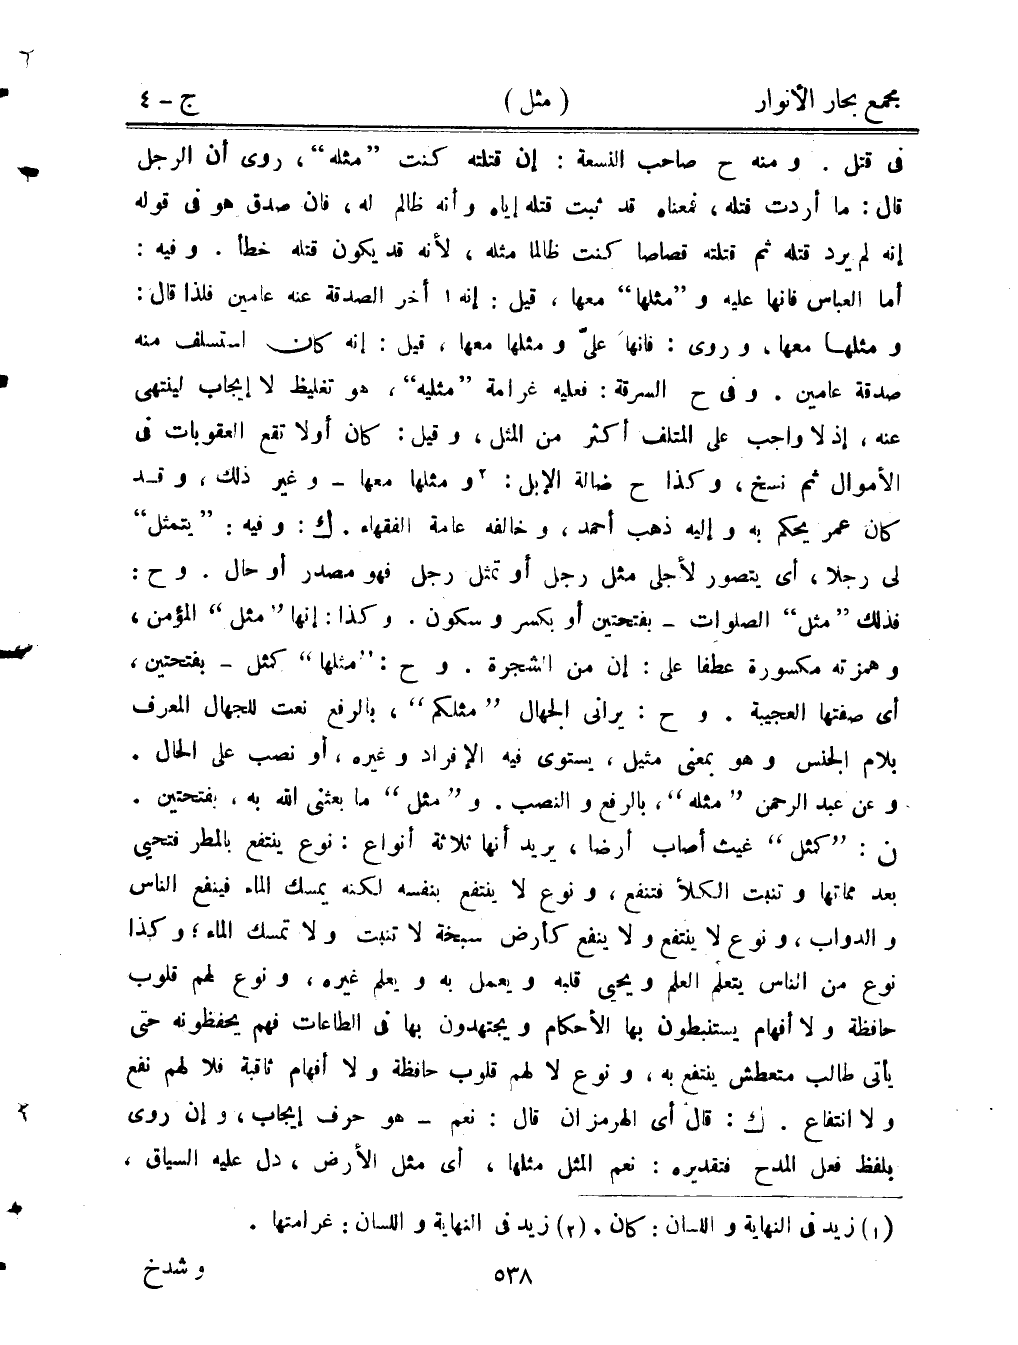 مجمع بحار الأنوار ( مثل ) ج - ٤
فى قتل . و منه ح صاحب النسعة : إن قتلته كنت ”مثله“ ، روى أن الرجل
قال : ما أردت قتله ، فمعناه قد ثبت قتله إياه و أنه ظالم له ، فان صدق هو فى قوله
إنه لم يرد قتله ثم قتلته قصاصا كنت ظالما مثله ، لأنه قد يكون قتله خطأ . و فيه :
أما العباس فانها عليه و ”مثلها“ معها ، قيل : إنه ١ أخر الصدقة عنه عامين فلذا قال :
و مثلهـا معها . و روى : فانها علىّ و مثلها معها ، قيل : إنه كان استسلف منه
صدقة عامين . و فى ح السرقة : فعليه غرامة ”مثليه“ ، هو تغليظ لا إيجاب لينتهى
عنه ، إذ لا واجب على المتلف أكثر من المثل ، و قيل : كان أولا تقع العقوبات فى
الأموال ثم نسخ ، و كذا ح ضالة الإبل : ٢ و مثلها معها - و غير ذلك ، و قـد
كان عمر يحكم به و إليه ذهب أحمد ، و خالفه عامة الفقهاء . ك : و فيه : ”يتمثل“
لى رجلا ، أى يتصور لأجلى مثل رجل أو تمثل رجل فهو مصدر أو حال . و ح :
فذلك ”مثل“ الصلوات - بفتحتين أو بكسر و سكون . و كذا : إنها ”مثل“ المؤمن ،
و همزته مكسورة عطفا على : إن من الشجرة . و ح : ”مثلها“ كمثل - بفتحتين ،
أى صفتها العجيبة . و ح : يرانى الجهال ”مثلكم“ ، بالرفع نعت للجهال المعرف
بلام الجنس و هو بمعنى مثيل ، يستوى فيه الإفراد و غيره ، أو نصب على الحال .
و عن عبد الرحمن ”مثله“ ، بالرفع و النصب . و ”مثل“ ما بعثنى الله به ، بفتحتين .
ن : ”كمثل“ غيث أصاب أرضا ، يريد أنها ثلاثة أنواع : نوع ينتفع بالمطر فتحيى
بعد مماتها و تنبت الكلأ فتنفع ، و نوع لا ينتفع بنفسه لكنه يمسك الماء فينفع الناس
و الدواب ، و نوع لا ينتفع و لا ينفع كأرض سبخة لا تنبت و لا تمسك الماء ؛ و كذا
نوع من الناس يتعلم العلم و يحيى قلبه و يعمل به و يعلم غيره ، و نوع لهم قلوب
حافظة و لا أفهام يستنبطون بها الأحكام و يجتهدون بها فى الطاعات فهم يحفظونه حتى
يأتى طالب متعطش ينتفع به ، و نوع لا لهم قلوب حافظة و لا أفهام ثاقبة فلا لهم نفع
و لا انتفاع . ك : قال أى الهرمزان قال : نعم - هو حرف إيجاب ، و إن روى
بلفظ فعل المدح فتقديره : نعم المثل مثلها ، أى مثل الأرض ، دل عليه السياق ،
(١) زيد فى النهاية و اللسان : كان . (٢) زيد فى النهاية و اللسان : غرامتها .
٥٣٨ و شدخ